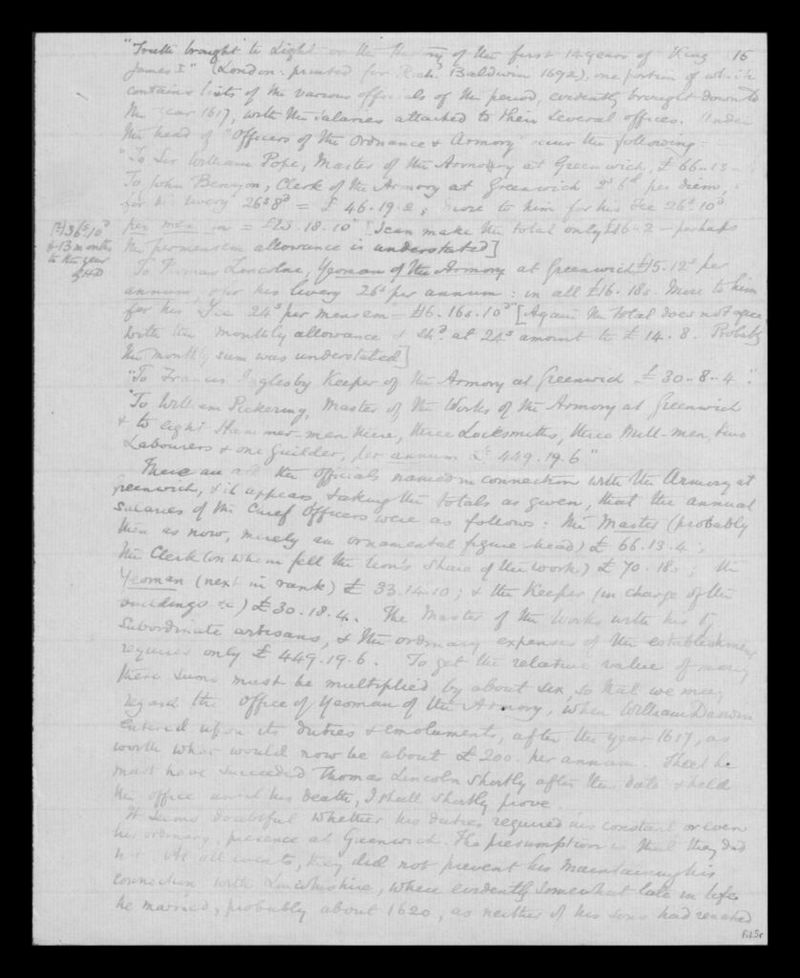 "Truth brought to Light or the History of the first 14 years of King 15
James I" (London: printed for Rich. Baldwin 1692), one portion of which
contains lists of the various officials of the period, evidently brought down to
the year 1617, with the salaries attached to their several offices. Under
the head of "Officers of the Ordnance & Armory" occur the following:-
"To Sir William Pope, Master of the Armoury at Greenwich, £66-13-
To John Benyon, Clerk of the Armory at Greenwich per diem,
for his livery 26s 8d = £46.19.2; more to him for his Fee 26s.10d
per men = £23.18.10" [I can make the total only - perhaps
the permensem allowance is understated]
13 months
to the year
"To Thomas Lincolne, Yeoman of the Armory at Greenwich £15.12s per
annum, & for his livery 26s per annum: in all £16.18s. More to him
for his Fee 24s per mensem - £16.16s.10d" [Again the total does not agree
with the monthly allowance & at 24s amount to £14.8. Probably
the monthly sum was understated]
"To Francis Inglesby Keeper of the Armory at Greenwich £30-8-4".
"To William Pickering, Master of the Works of the Armory at Greenwich
& to eight Hammer-men there, three Locksmiths, three Mill-men, two
Labourers & one guilder, per annum £449.19.6"
These are all the officials named in connection with the Armory at
Greenwich, & it appears, taking the totals as given, that the annual
salaries of the Chief Officers were as follows: the Master (probably
then as now, merely an ornamental figure-head) £66.13.4;
the Clerk (on whom fell the lion's share of the work) £70.18s; the
Yeoman (next in rank) £33.14.10; & the Keeper (in charge of the
buildings &c) £30.18.4. The Master of the Works with his 17
subordinate artisans, & the ordinary expenses of the establishment
required only £449.19.6. To get the relative value of money
these sums must be multiplied by about six, so that we may
regard the Office of Yeoman of the Armory, when William Darwin
entered upon its duties & emoluments, after the year 1617, as
worth what would now be about £200. per annum. That he
must have succeeded Thomas Lincoln shortly after this date & held
the office until his death, I shall shortly prove.
It seems doubtful whether his duties required his constant or even
his ordinary presence at Greenwich. The presumption is that they did
not. At all events, they did not prevent his maintaining his
connection with Lincolnshire, where evidently somewhat late in life
he married, probably about 1620, as neither of his sons had reached